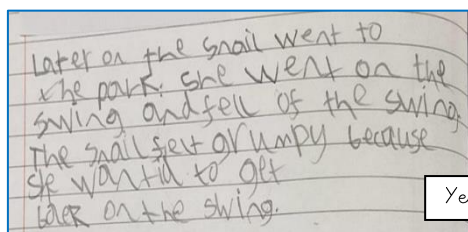 Later on the snail went to
the park. She went on the
swing and fell of the swing.
The snail felt grumpy because
she wantid to get
back on the swing.
Ye